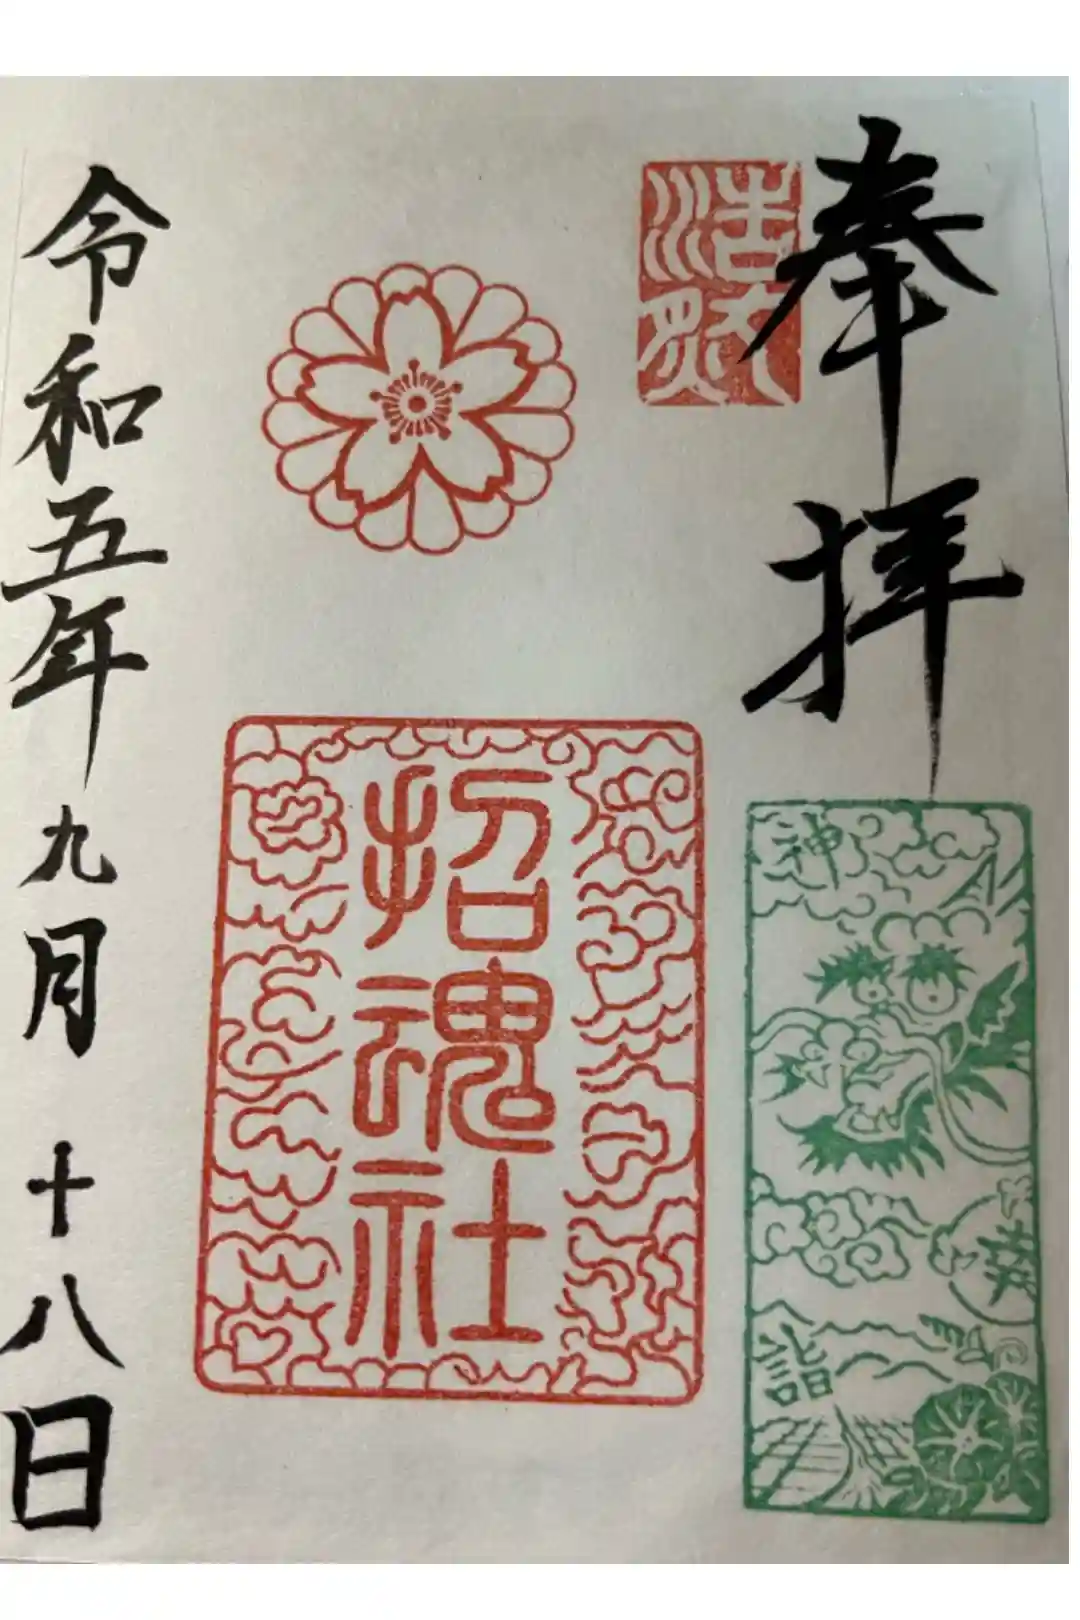 奉拝
浩然
神
詣
招魂社
令和五年九月十八日